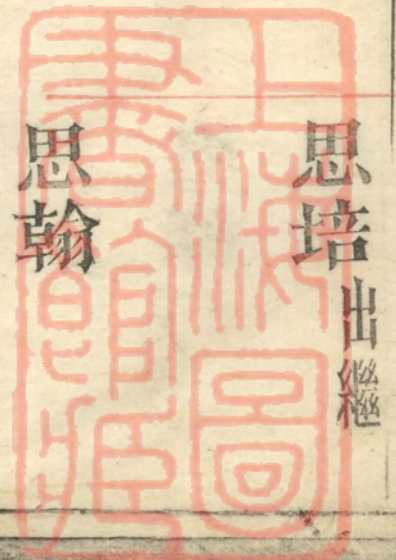 思培出繼
思翰
上海圖書館藏